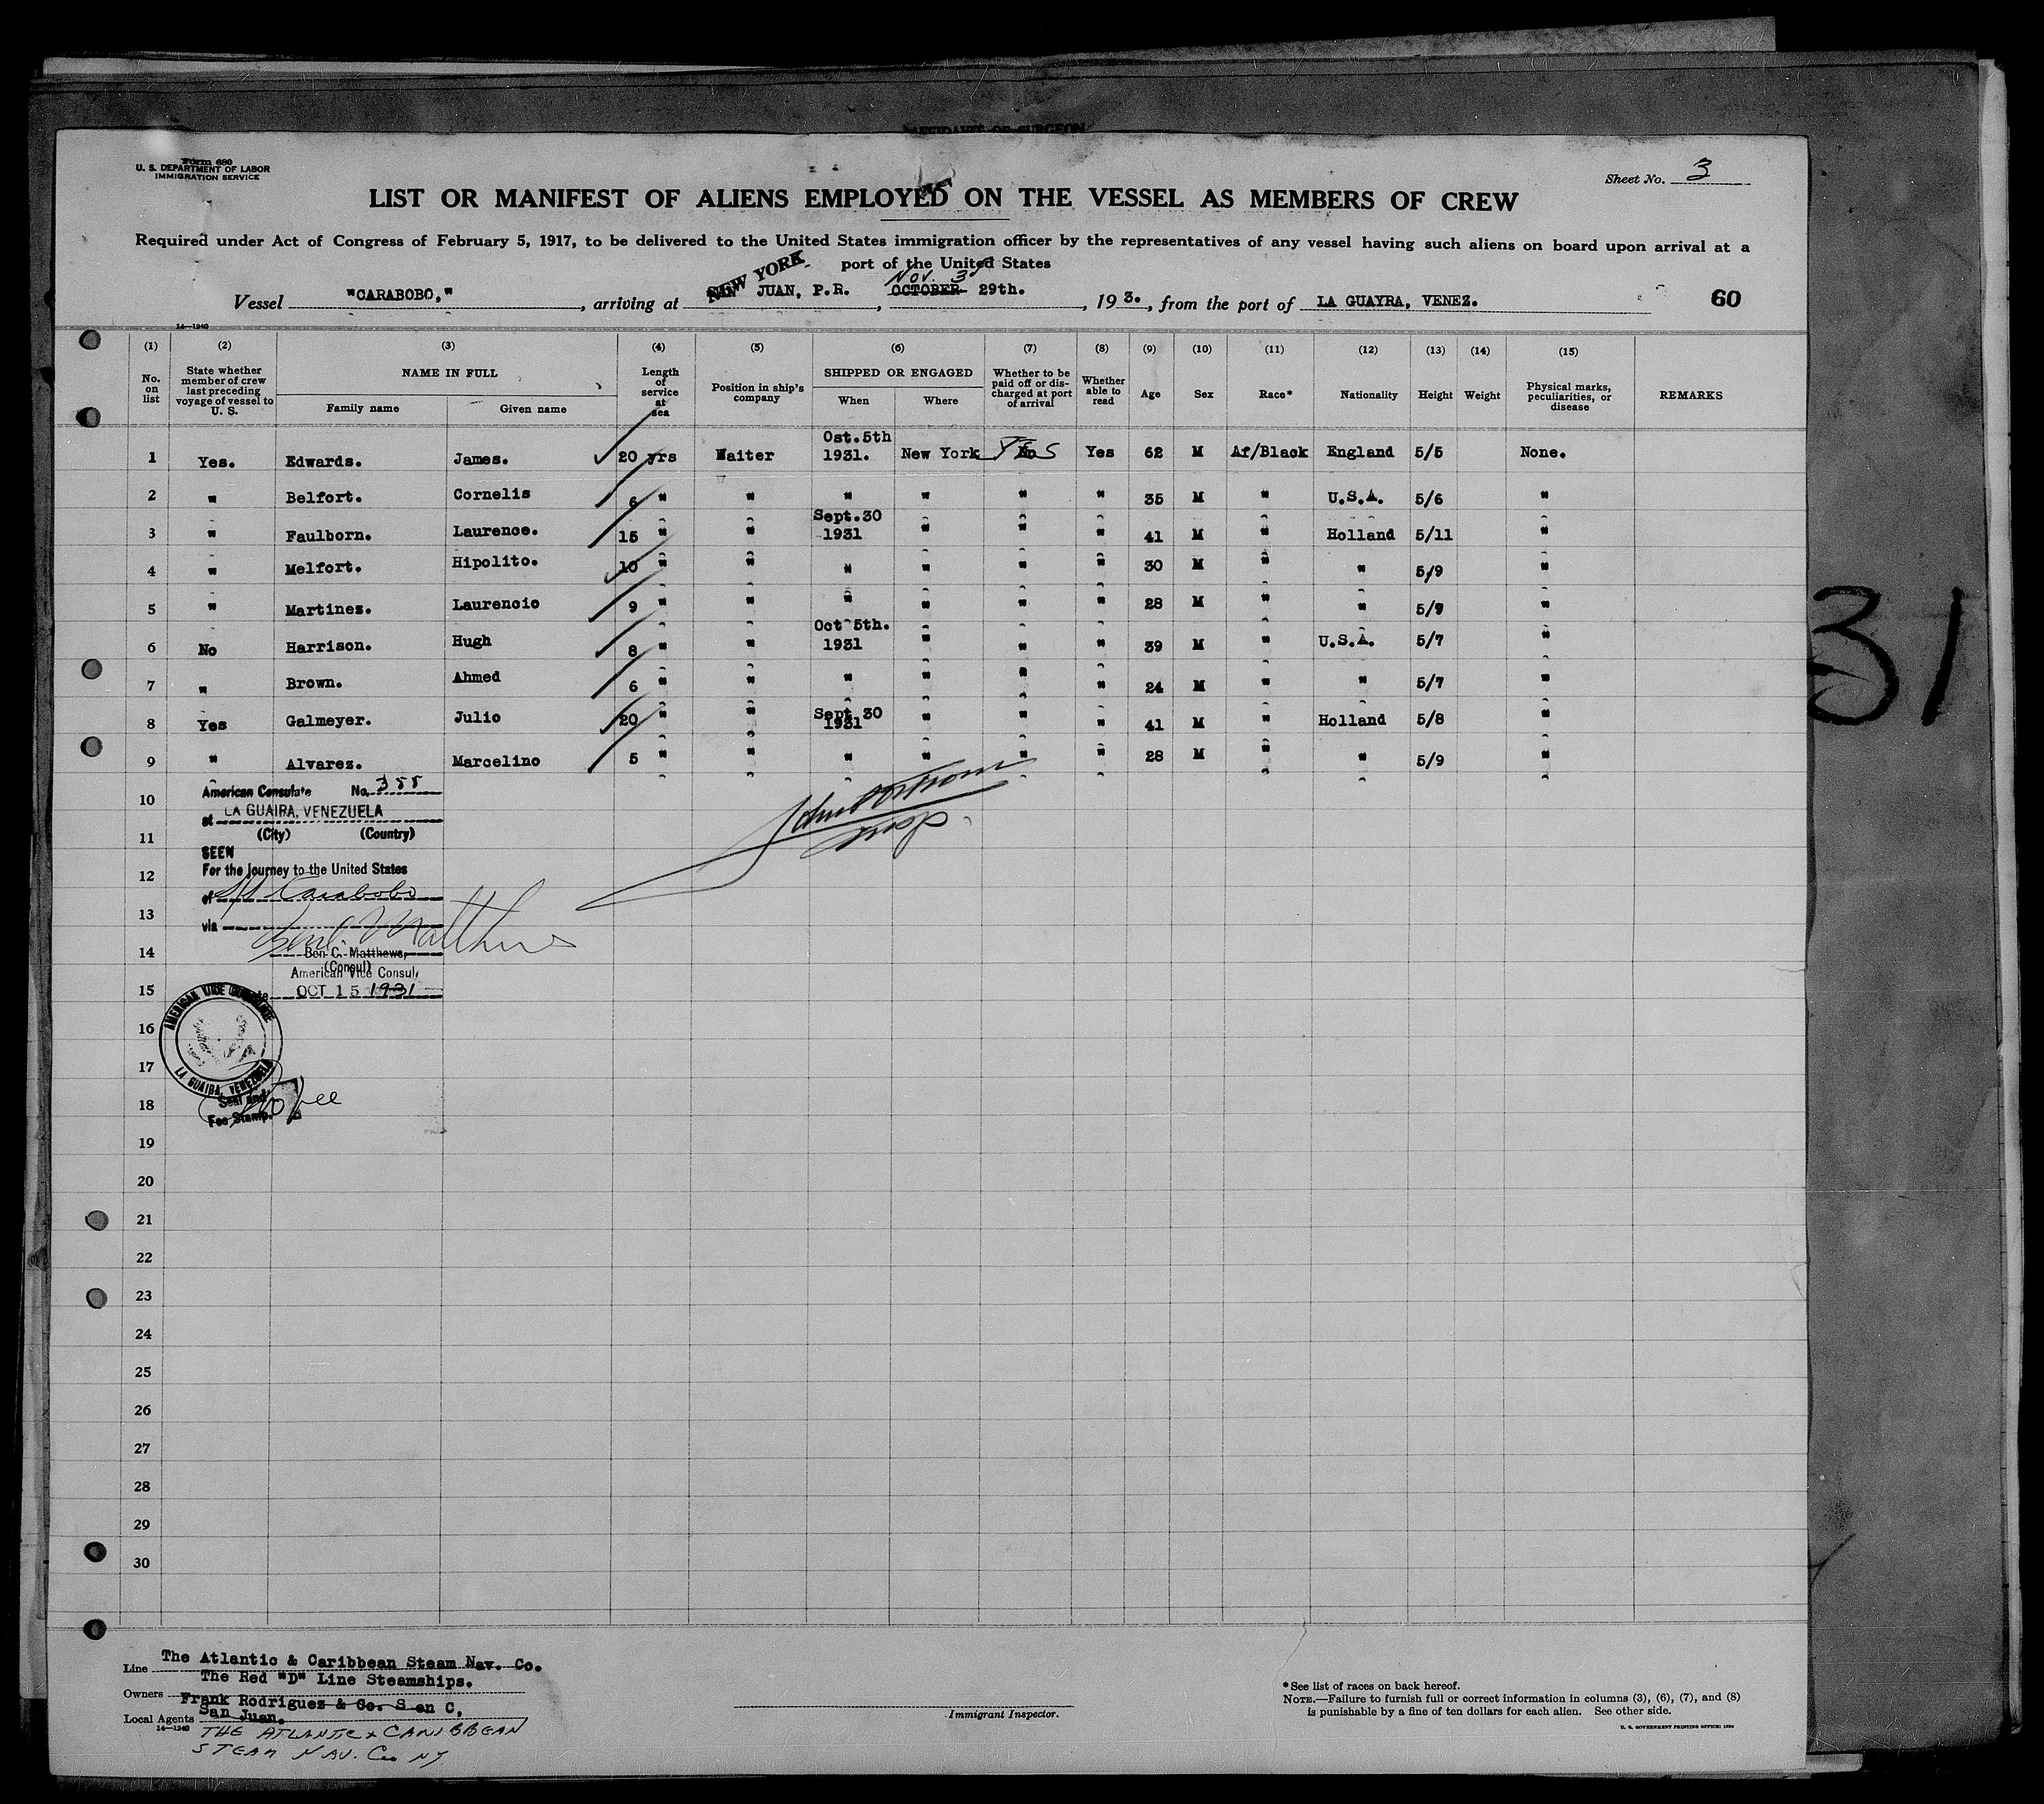 AFFIDAVIT OF SURGEON
Form 680
U. S. DEPARTMENT OF LABOR
IMMIGRATION SERVICE
Sheet No. 3
LIST OR MANIFEST OF ALIENS EMPLOYED ON THE VESSEL AS MEMBERS OF CREW
Required under Act of Congress of February 5, 1917, to be delivered to the United States immigration officer by the representatives of any vessel having such aliens on board upon arrival at a
port of the United States
NEW YORK Nov. 3d
Vessel "CARABOBO," , arriving at SAN JUAN, P.R. , OCTOBER 29th. , 193 , from the port of LA GUAYRA, VENEZ. 60
14—1240
(1) (2) (3) (4) (5) (6) (7) (8) (9) (10) (11) (12) (13) (14) (15)
No. on list State whether member of crew last preceding voyage of vessel to U. S. NAME IN FULL Family name Given name Length of service at sea Position in ship's company SHIPPED OR ENGAGED When Where Whether to be paid off or discharged at port of arrival Whether able to read Age Sex Race* Nationality Height Weight Physical marks, peculiarities, or disease REMARKS
1 Yes. Edwards. James. 20 yrs Waiter Ost.5th 1931. New York No YES Yes 62 M Af/Black England 5/5 None.
2 " Belfort. Cornelis 6 " " " " " " 35 M " U.S.A. 5/6 "
3 " Faulborn. Laurence. 15 " " Sept.30 1931 " " " 41 M " Holland 5/11 "
4 " Melfort. Hipolito. 10 " " " " " " 30 M " " 5/9 "
5 " Martinez. Laurencio 9 " " " " " " 28 M " " 5/9 "
6 No Harrison. Hugh 8 " " Oct 5th. 1931 " " " 39 M " U.S.A. 5/7 "
7 " Brown. Ahmed 6 " " " " " " 24 M " " 5/7 "
8 Yes Galmeyer. Julio 20 " " Sept 30 1931 " " " 41 M " Holland 5/8 "
9 " Alvarez. Marcelino 5 " " " " " " 28 M " " 5/9 "
American Consulate No. 355
10
at LA GUAIRA, VENEZUELA
(City) (Country)
11
SEEN
For the Journey to the United States
12
of S/S Carabobo
13
via
Ben C. Matthews
14
Ben C. Matthews,
(Consul)
American Vice Consul,
15
OCT 15 1931
AMERICAN VICE CONSULATE
LA GUAIRA, VENEZUELA
16
17
Seal and
Fee Stamp.
No fee
18
19
20
21
22
23
24
25
26
27
28
29
30
31
Line The Atlantic & Caribbean Steam Nav. Co.
The Red "D" Line Steamships.
Owners Frank Rodriguez & Co. S en C,
Local Agents San Juan.
14—1240
THE ATLANTIC & CARIBBEAN
STEAM NAV. Co NY
Immigrant Inspector.
* See list of races on back hereof.
NOTE.—Failure to furnish full or correct information in columns (3), (6), (7), and (8)
is punishable by a fine of ten dollars for each alien. See other side.